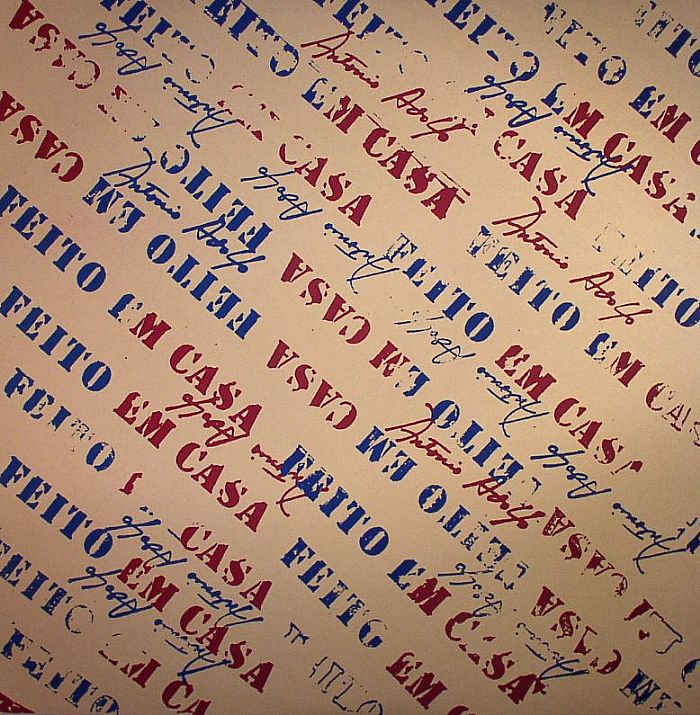 FEITO EM CASA
Antonio Adolfo
FEITO EM CASA
Antonio Adolfo
FEITO EM CASA
Antonio Adolfo
FEITO EM CASA
Antonio Adolfo
FEITO EM CASA
Antonio Adolfo
FEITO EM CASA
FEITO EM CASA
Antonio Adolfo
FEITO EM CASA
Antonio Adolfo
FEITO EM CASA
FEITO EM CASA
Antonio Adolfo
FEITO EM CASA
Antonio Adolfo
FEITO EM CASA
FEITO EM CASA